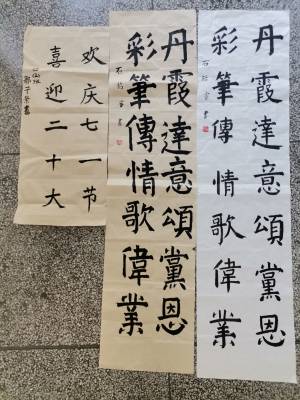 丹霞達意頌黨恩
彩筆傳情歌偉業
丹霞達意頌黨恩
彩筆傳情歌偉業
欢庆七一节
喜迎二十大